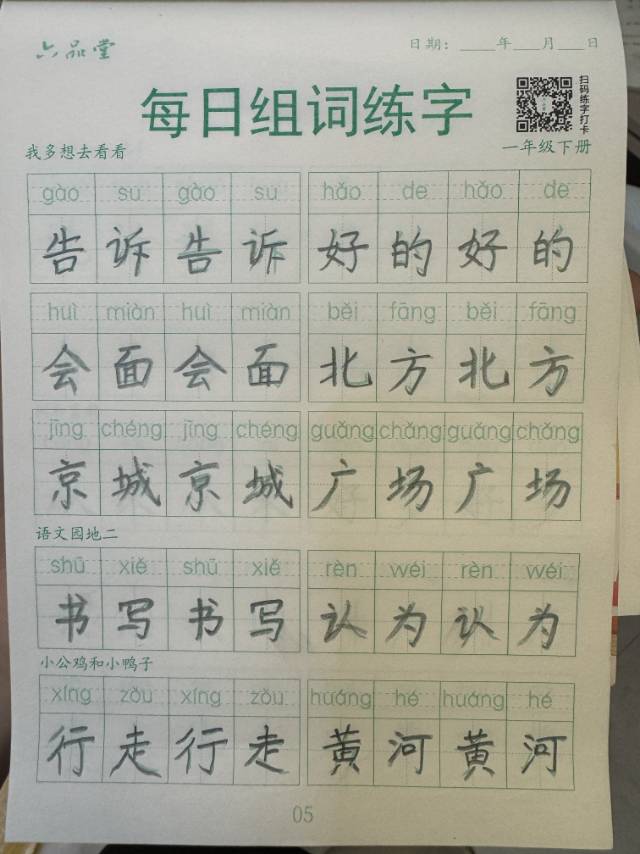 六品堂
日期：____年___月___日
每日组词练字
扫码练字打卡
我多想去看看
一年级下册
gào su gào su hǎo de hǎo de
告诉告诉 好的好的
huì miàn huì miàn běi fāng běi fāng
会面会面 北方北方
jīng chéng jīng chéng guǎng chǎng guǎng chǎng
京城京城 广场广场
语文园地二
shū xiě shū xiě rèn wéi rèn wéi
书写书写 认为认为
小公鸡和小鸭子
xíng zǒu xíng zǒu huáng hé huáng hé
行走行走 黄河黄河
05